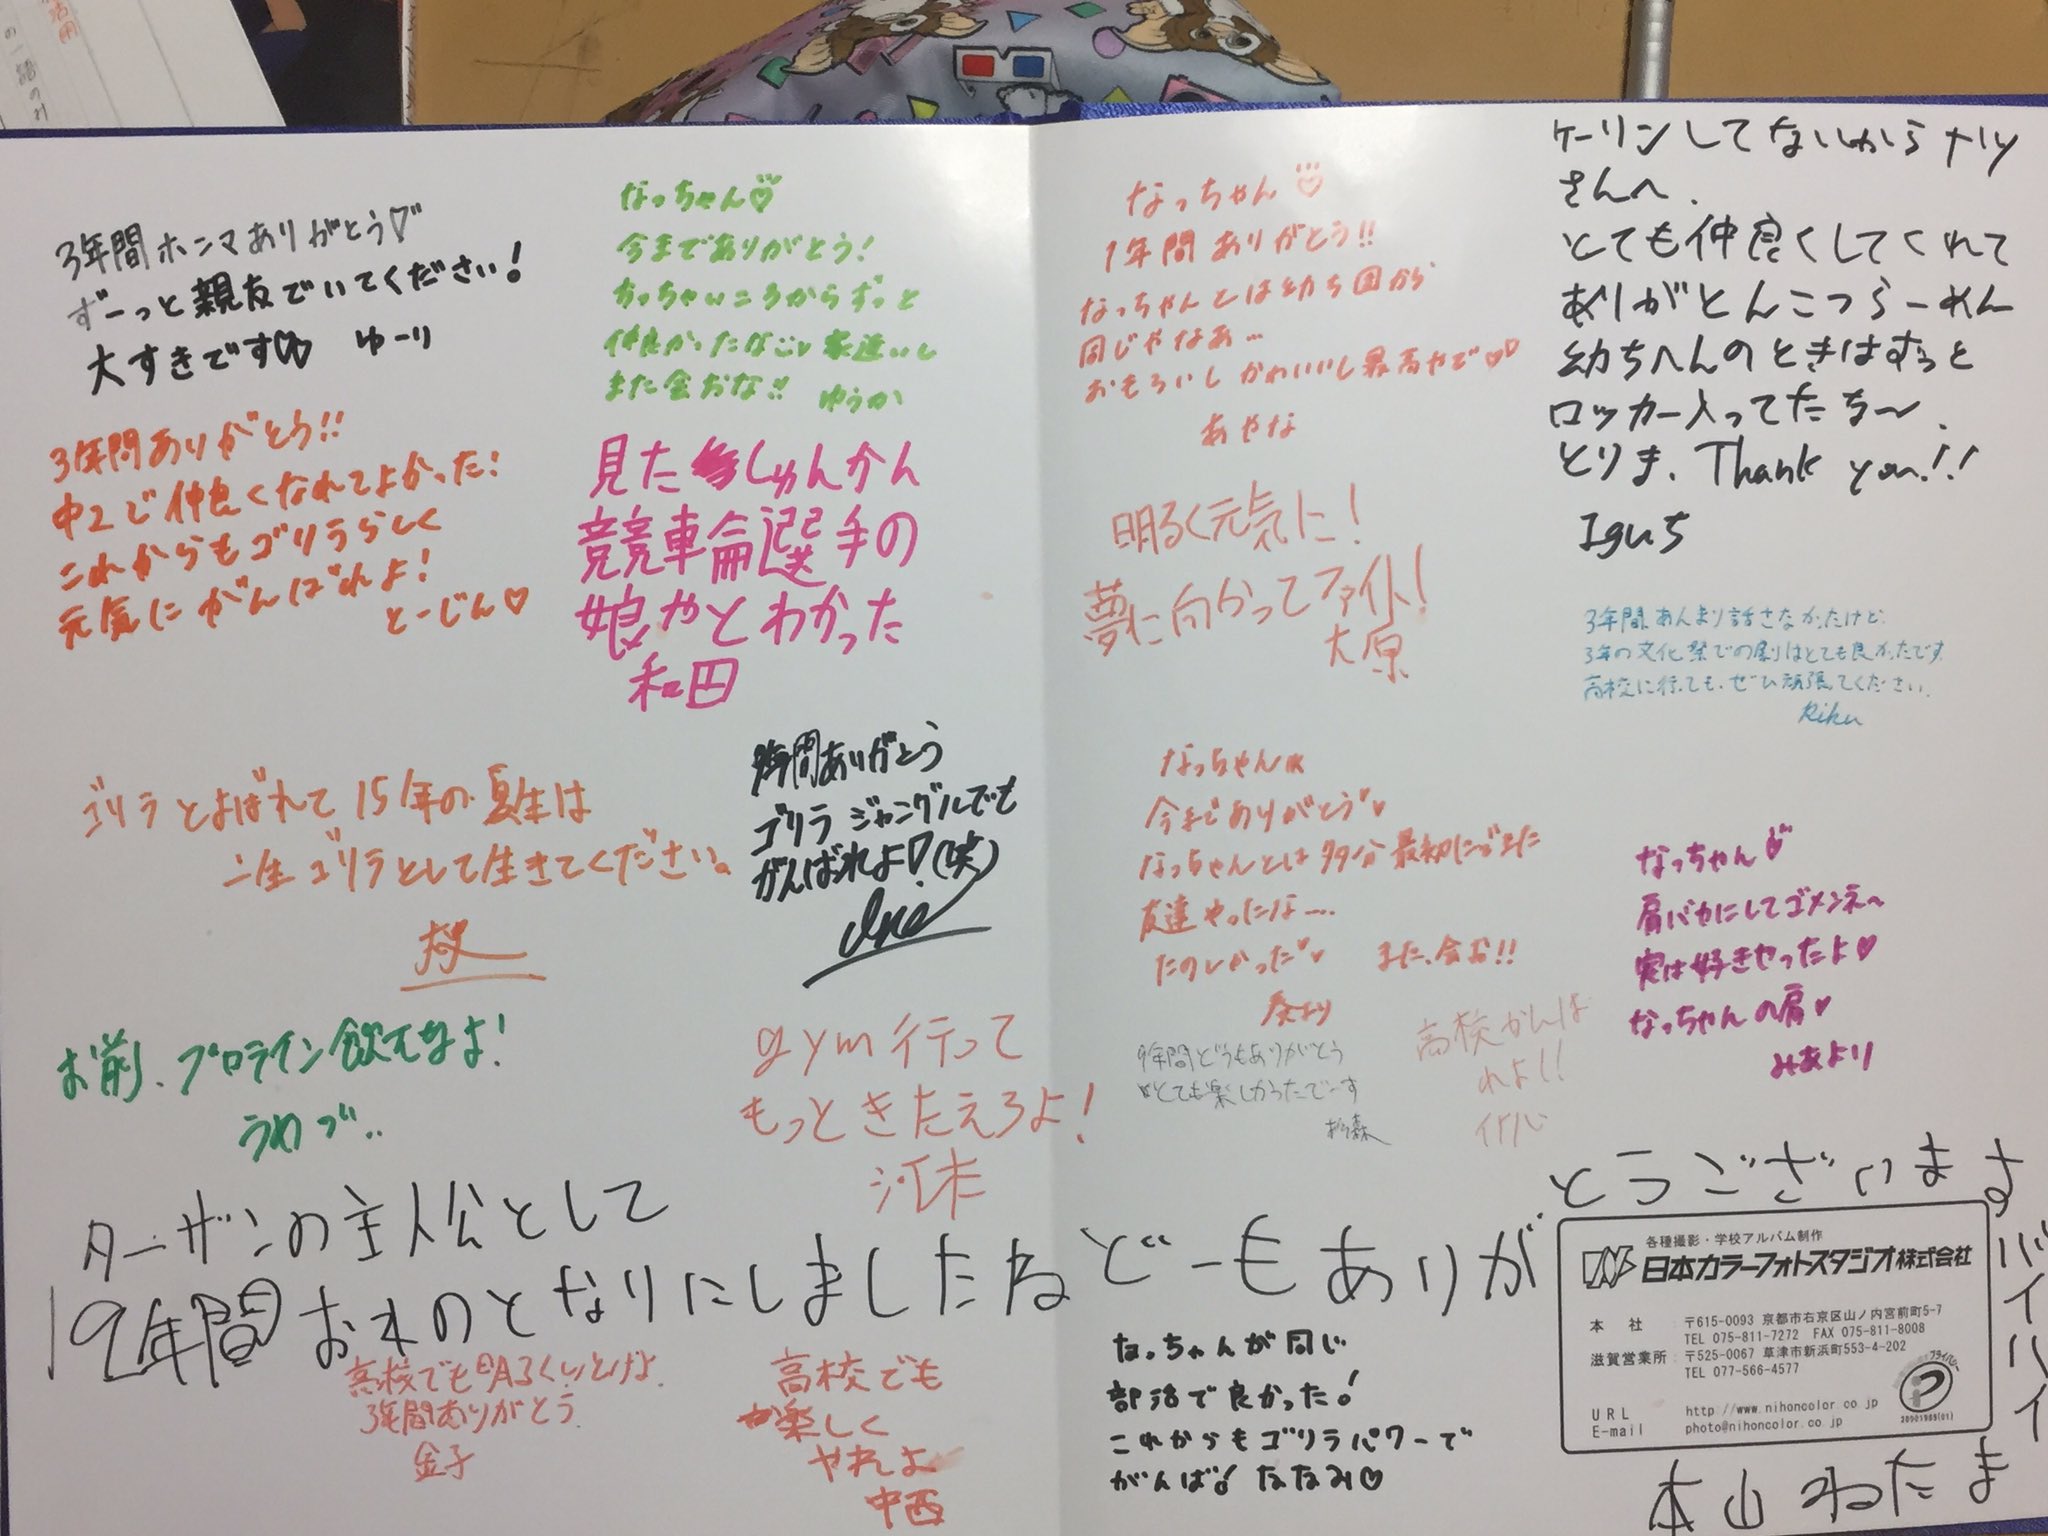 3年間ホンマありがとう♡
ずーっと親友でいてください!
大すきです♡ ゆーり
3年間ありがとう!!
中2で仲良くなれてよかった!
これからもゴリラらしく
元気にがんばれよ!
とーじん♡
ゴリラとよばれて15年の夏生は
一生ゴリラとして生きてください。
お前、プロテイン飲むなよ!
うめづ..
なっちゃん♡
今までありがとう!
ちっちゃいころからずっと
仲良かったなぁ 家近いし
また会おな!! ゆうか
見たしゅんかん
競車輪選手の
娘やとわかった
和田
年間ありがとう
ゴリラ ジャングルでも
がんばれよ!(笑)
gym行って
もっときたえろよ!
ターザンの主人公として
12年間おれのとなりにしましたね どーもありが
とうございます
バイバイ
本山 ねたま
高校でも明るくいとけよ
3年間ありがとう
金子
高校でも
楽しく
やれよ
中西
なっちゃん♡
1年間ありがとう!!
なっちゃんとは幼ち園から
同じやなあ...
おもろいし かわいいし最高やで♡♡
あやな
明るく元気に!
夢に向かってファイト!
大原
なっちゃん
今までありがとう♡
なっちゃんとは多分最初にできた
友達やったな....
たのしかった♡ また会お!!
9年間どうもありがとう
とても楽しかったでーす
高校がんば
れよ!!
なっちゃんが同じ
部活で良かった!
これからもゴリラパワーで
がんば! ななみ♡
ケーリンしてないからナリy
さんへ.
とても仲良くしてくれて
ありがとんこつらーめん
幼ちへんのときはずっと
ロッカー入ってたな〜.
とりま、Thank you!!
Iguち
3年間、あんまり話さなかったけど、
3年の文化祭での劇はとても良かったです。
高校に行っても、ぜひ頑張ってください。
Riku
なっちゃん♡
肩バカにしてゴメンネ〜
実は好きやったよ♡
なっちゃんの肩♡
みあより
各種撮影・学校アルバム制作
日本カラーフォトスタジオ株式会社
本 社 〒615-0093 京都市右京区山ノ内宮前町5-7
TEL 075-811-7272 FAX 075-811-8008
滋賀営業所 〒525-0067 草津市新浜町553-4-202
TEL 077-566-4577
URL http://www.nihoncolor.co.jp
E-mail photo@nihoncolor.co.jp